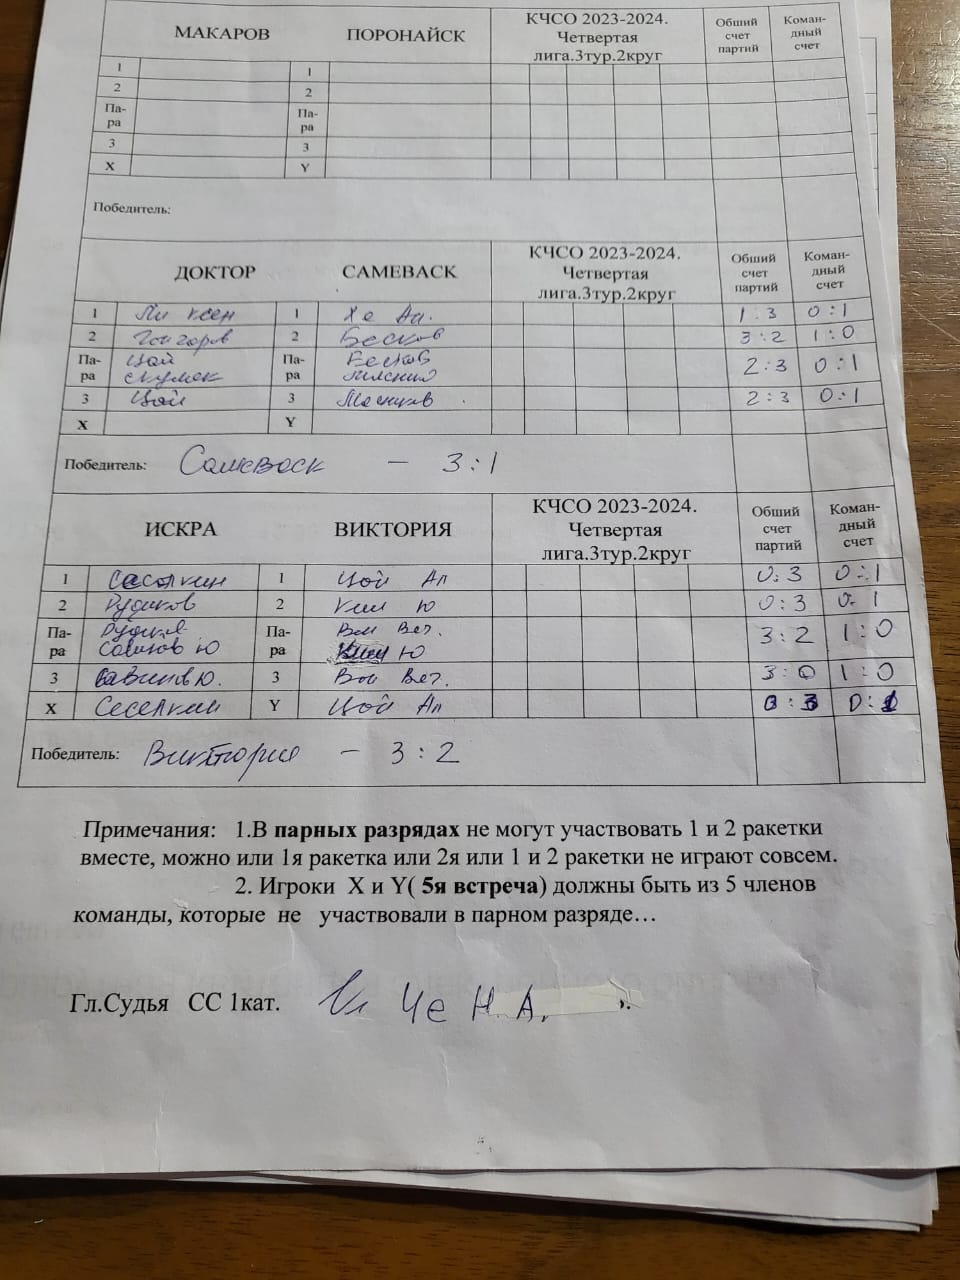 МАКАРОВ ПОРОНАЙСК КЧСО 2023-2024. Четвертая лига.3тур.2круг Общий счет партий Коман-дный счет
1 1
2 2
Па-ра Па-ра
3 3
X Y
Победитель:
ДОКТОР САМЕВАСК КЧСО 2023-2024. Четвертая лига.3тур.2круг Общий счет партий Коман-дный счет
1 Ли Ксен 1 Хе Ал. 1:3 0:1
2 2 Бесков 3:2 1:0
Па-ра Цой Па-ра Бесков 2:3 0:1
3 Цой 3 2:3 0:1
X Y
Победитель: Самеваск – 3:1
ИСКРА ВИКТОРИЯ КЧСО 2023-2024. Четвертая лига.3тур.2круг Общий счет партий Коман-дный счет
1 1 Цой Ал 0:3 0:1
2 Рудиков 2 Ким Ю 0:3 0:1
Па-ра Па-ра Вон Вег. 3:2 1:0
Ю Ю
3 Савинов Ю. 3 Вон Вег. 3:0 1:0
X Y Цой Ал 0:3 0:1
Победитель: Виктория – 3:2
Примечания: 1.В парных разрядах не могут участвовать 1 и 2 ракетки
вместе, можно или 1я ракетка или 2я или 1 и 2 ракетки не играют совсем.
2. Игроки X и Y( 5я встреча) должны быть из 5 членов
команды, которые не участвовали в парном разряде…
Гл.Судья СС 1кат. Че Н.А.